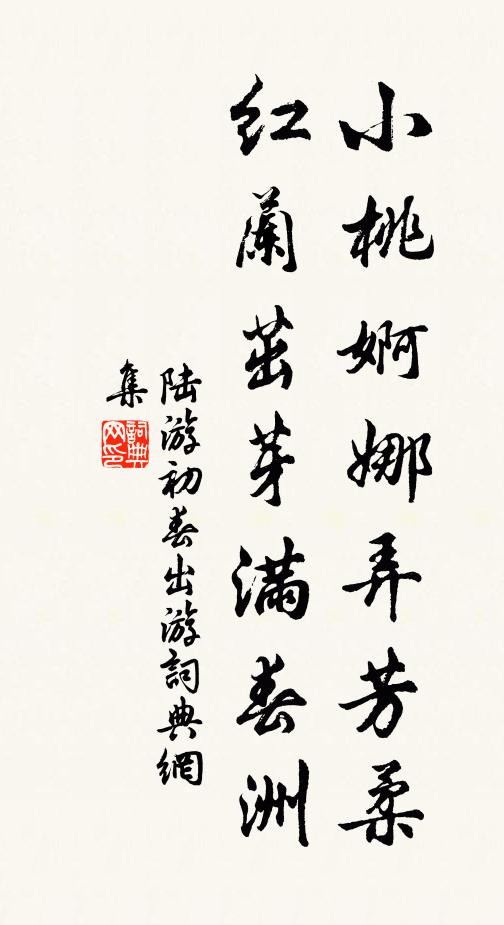 小桃婀娜弄芳柔
紅蘭茁芽滿春洲
陆游初春出游詞典網
集
詞典网印